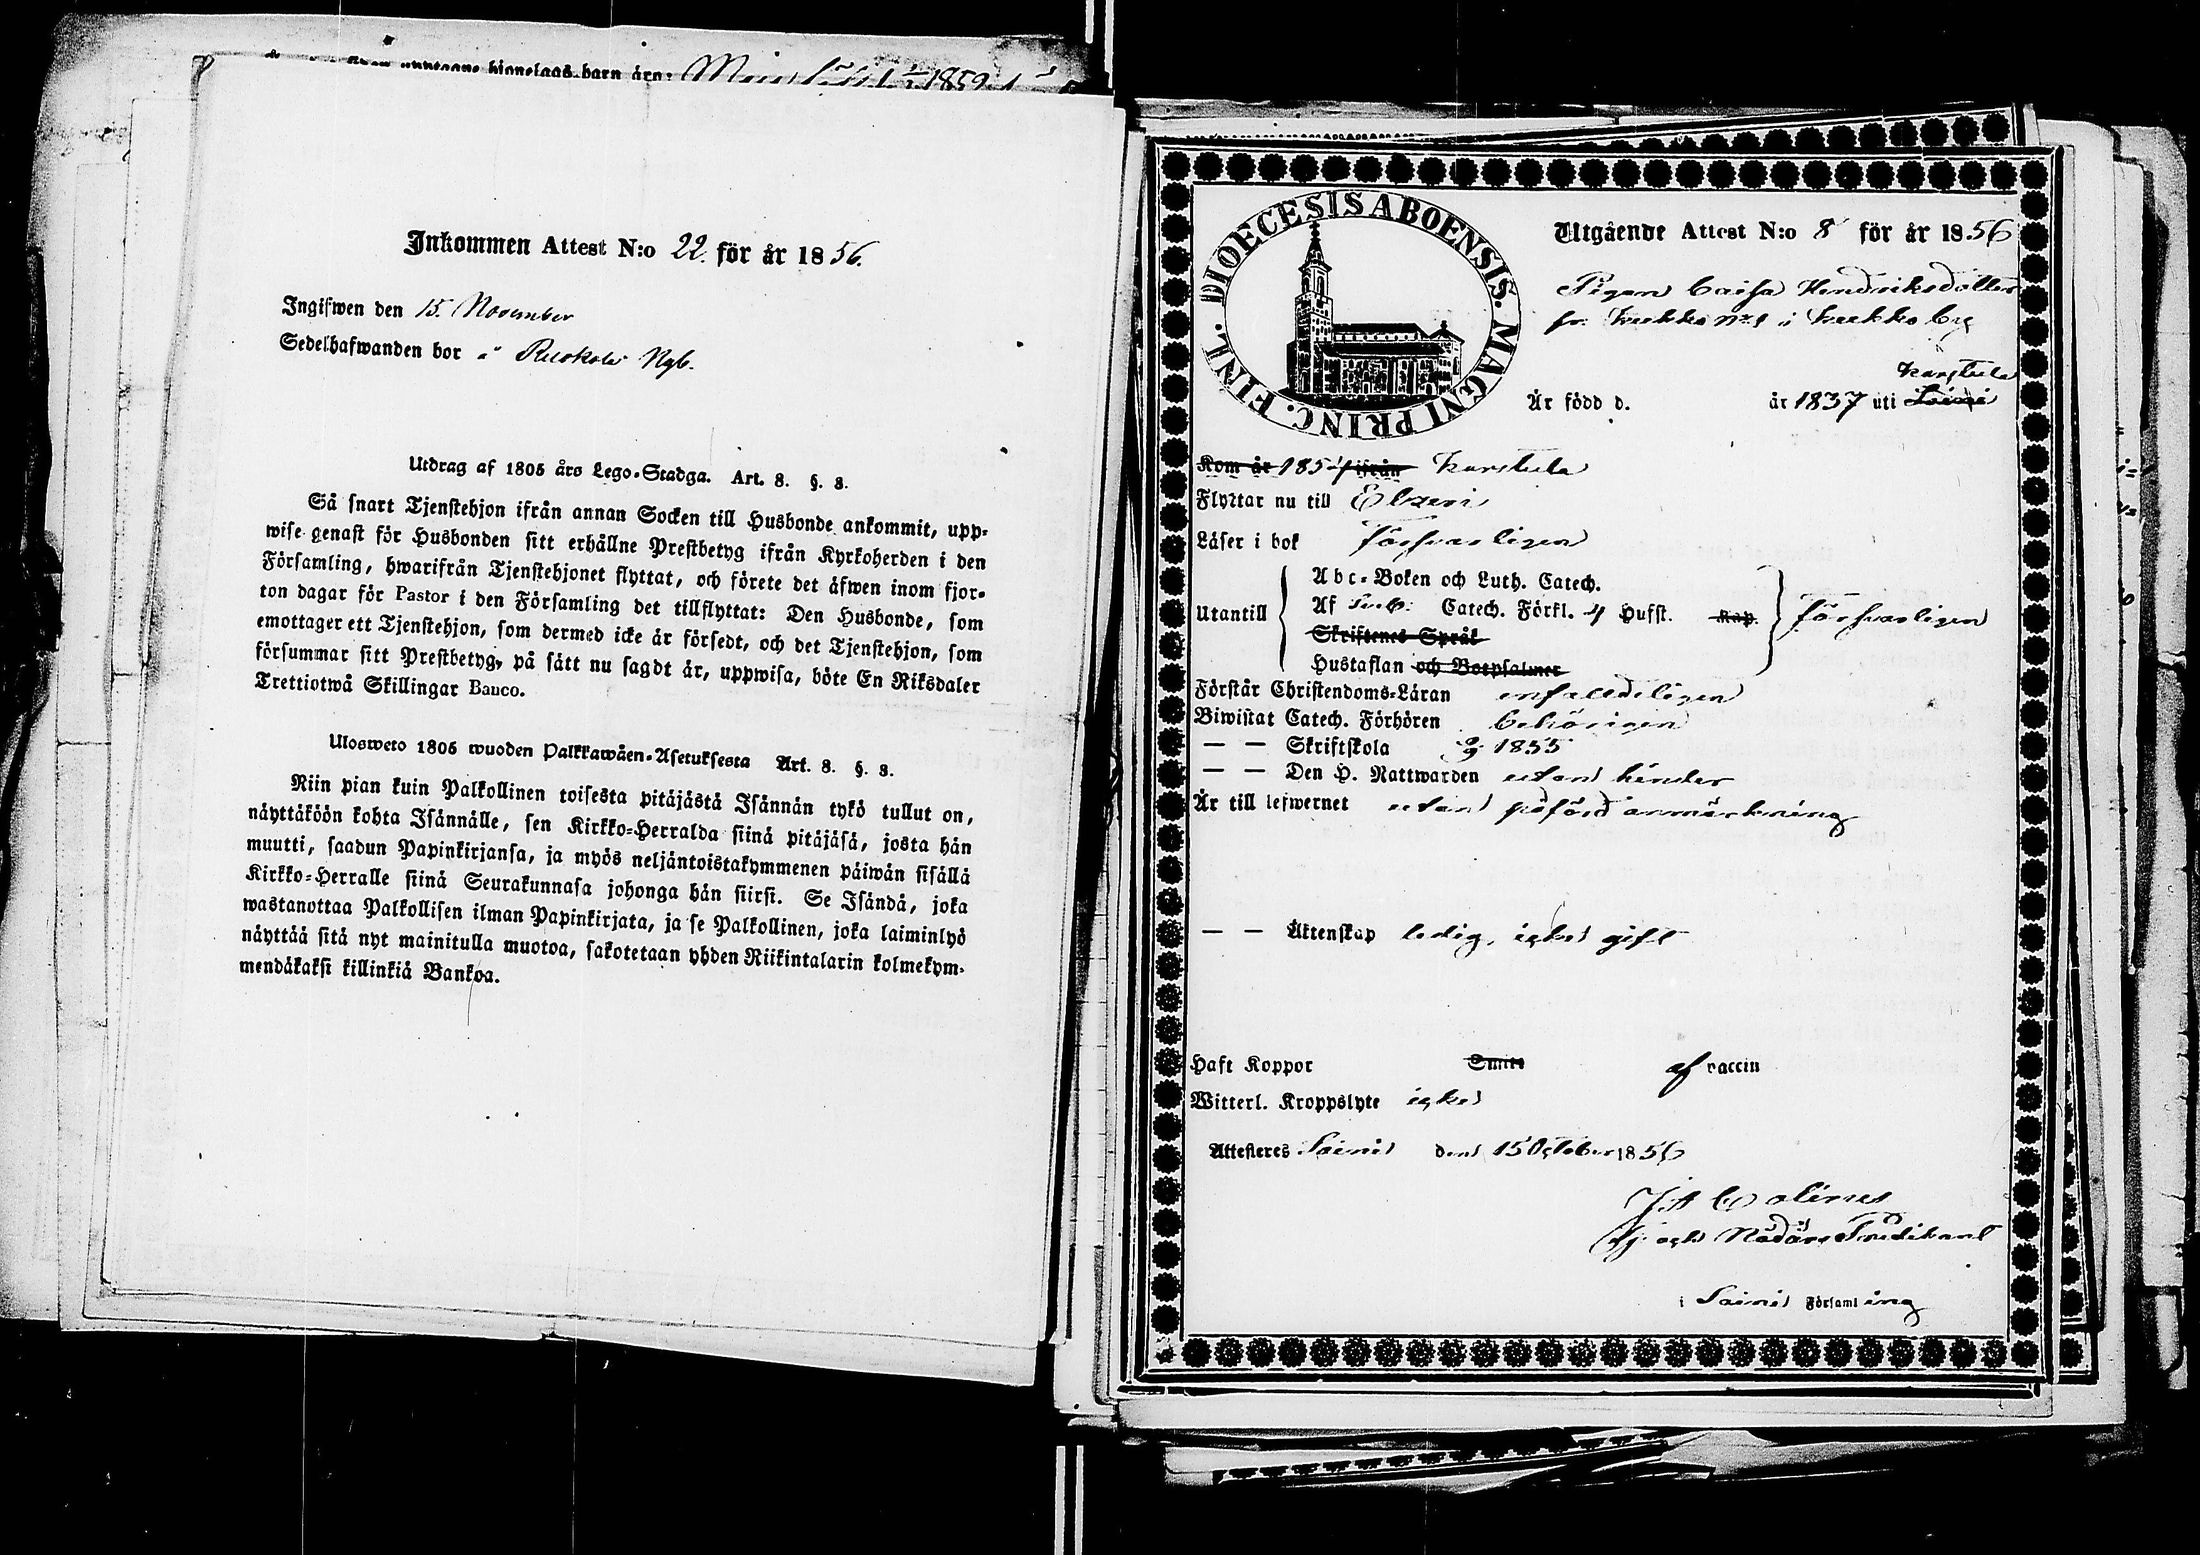 upptagne hjonelags-barn äro:
Inkommen Attest N:o 22. för år 1856.
Ingifwen den 15. November
Sedelhafwanden bor i Ruokola Nyb.
Utdrag af 1805 års Lego-Stadga. Art. 8. §. 8.
Så snart Tjenstehjon ifrån annan Socken till Husbonde ankommit, upp-
wise genast för Husbonden sitt erhållne Prestbetyg ifrån Kyrkoherden i den
Församling, hwarifrån Tjenstehjonet flyttat, och förete det äfwen inom fjor-
ton dagar för Pastor i den Församling det tillflyttat: Den Husbonde, som
emottager ett Tjenstehjon, som dermed icke är försedt, och det Tjenstehjon, som
försummar sitt Prestbetyg, på sätt nu sagdt är, uppwisa, böte En Riksdaler
Trettiotwå Skillingar Bauco.
Ulosweto 1805 wuoden Palkkawäen-Asetuksesta Art. 8. §. 8.
Niin pian kuin Palkollinen toisesta pitäjästä Isännän tykö tullut on,
näyttäköön kohta Isännälle, sen Kirkko-Herralda siinä pitäjäsä, josta hän
muutti, saadun Papinkirjansa, ja myös neljäntoistakymmenen päiwän sisällä
Kirkko-Herralle siinä Seurakunnasa johonga hän siirsi. Se Isändä, joka
wastanottaa Palkollisen ilman Papinkirjata, ja se Palkollinen, joka laiminlyö
näyttää sitä nyt mainitulla muotoa, sakotetaan yhden Riikintalarin kolmekym-
mendäkaksi killinkiä Bankoa.
DIOECESIS ABOENSIS. MAGNI PRINC. FINL.
Utgående Attest N:o 8 för år 1856
Pigan Caisa Hendriksdotter
fr. Kukko Nr 1 i Kukko by
Karstula
Är född d. år 1837 uti Saini
Kom år 185 ifrån Karstula
Flyttar nu till Etzeri
Läser i bok försvarligen
Abc-Boken och Luth. Catech.
Utantill Af Sveb. Catech. Förkl. 4 Hufst. Kap. försvarligen
Skriftenes Språk
Hustaflan och Botpsalmer
Förstår Christendoms-Läran enfalldeligen
Biwistat Catech. Förhören behörigen
— — Skriftskola 1855
— — Den H. Nattwarden utan hinder
Är till lefwernet utan påförd anmärkning
— — Äktenskap ledig, icke gift
Haft Koppor Smitt af vaccin
Witterl. Kroppslyte icke
Attesteres Saini den 15 October 1856
Tj. och Nådårs Predikant
i Saini Församling